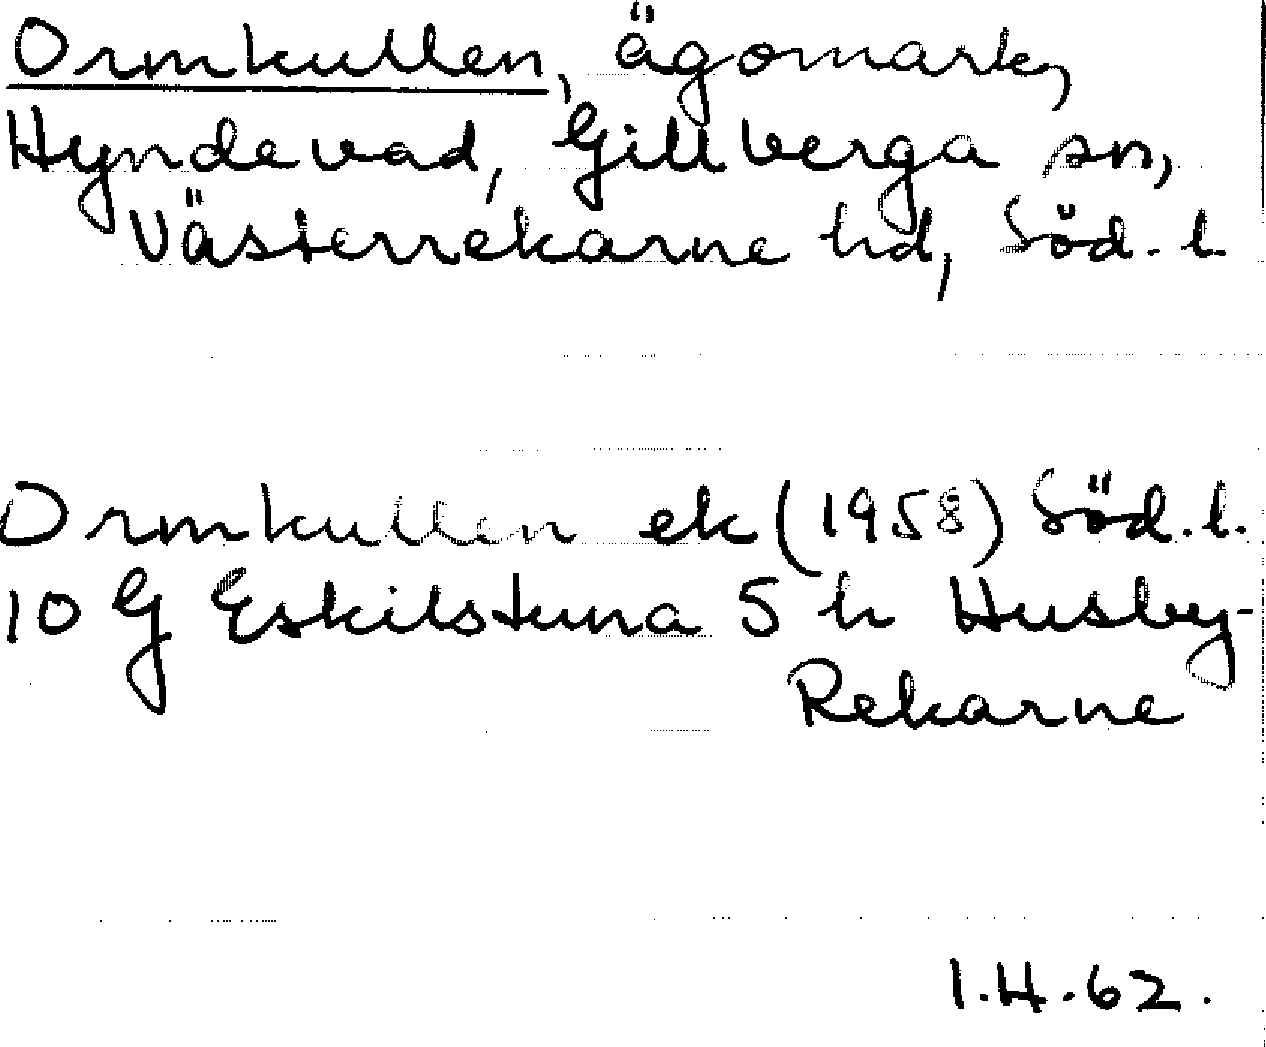 Ormkullen, ägomark,
Hyndevad, Gillberga sn,
Västerrekarne hd, Söd. l.
Ormkullen ek (1958) Söd. l.
10 G Eskilstuna 5 h Husby-
Rekarne
I.H.62.